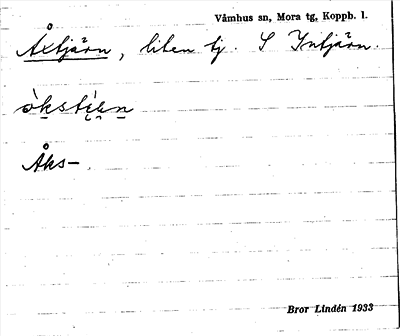 Våmhus sn, Mora tg, Koppb. l.
Åxtjärn, liten tj. S Yntjärn.
òkstì̯ɛn
Åks–.
Bror Lindén 1933